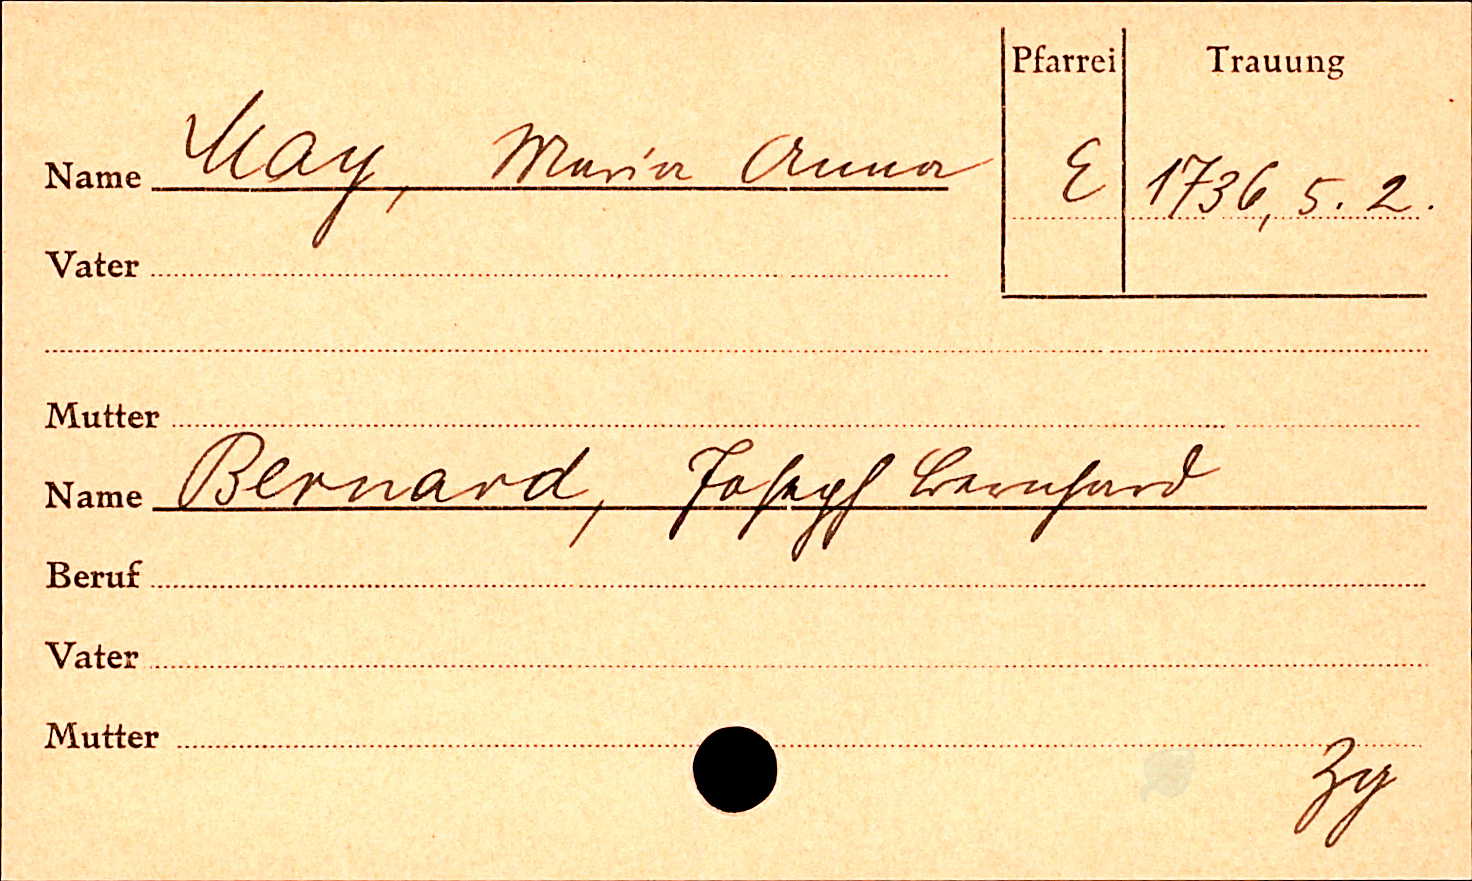 Pfarrei Trauung
Name May, Maria Anna E 1736, 5. 2.
Vater
Mutter
Name Bernard, Joseph Bernhard
Beruf
Vater
Mutter
Zy